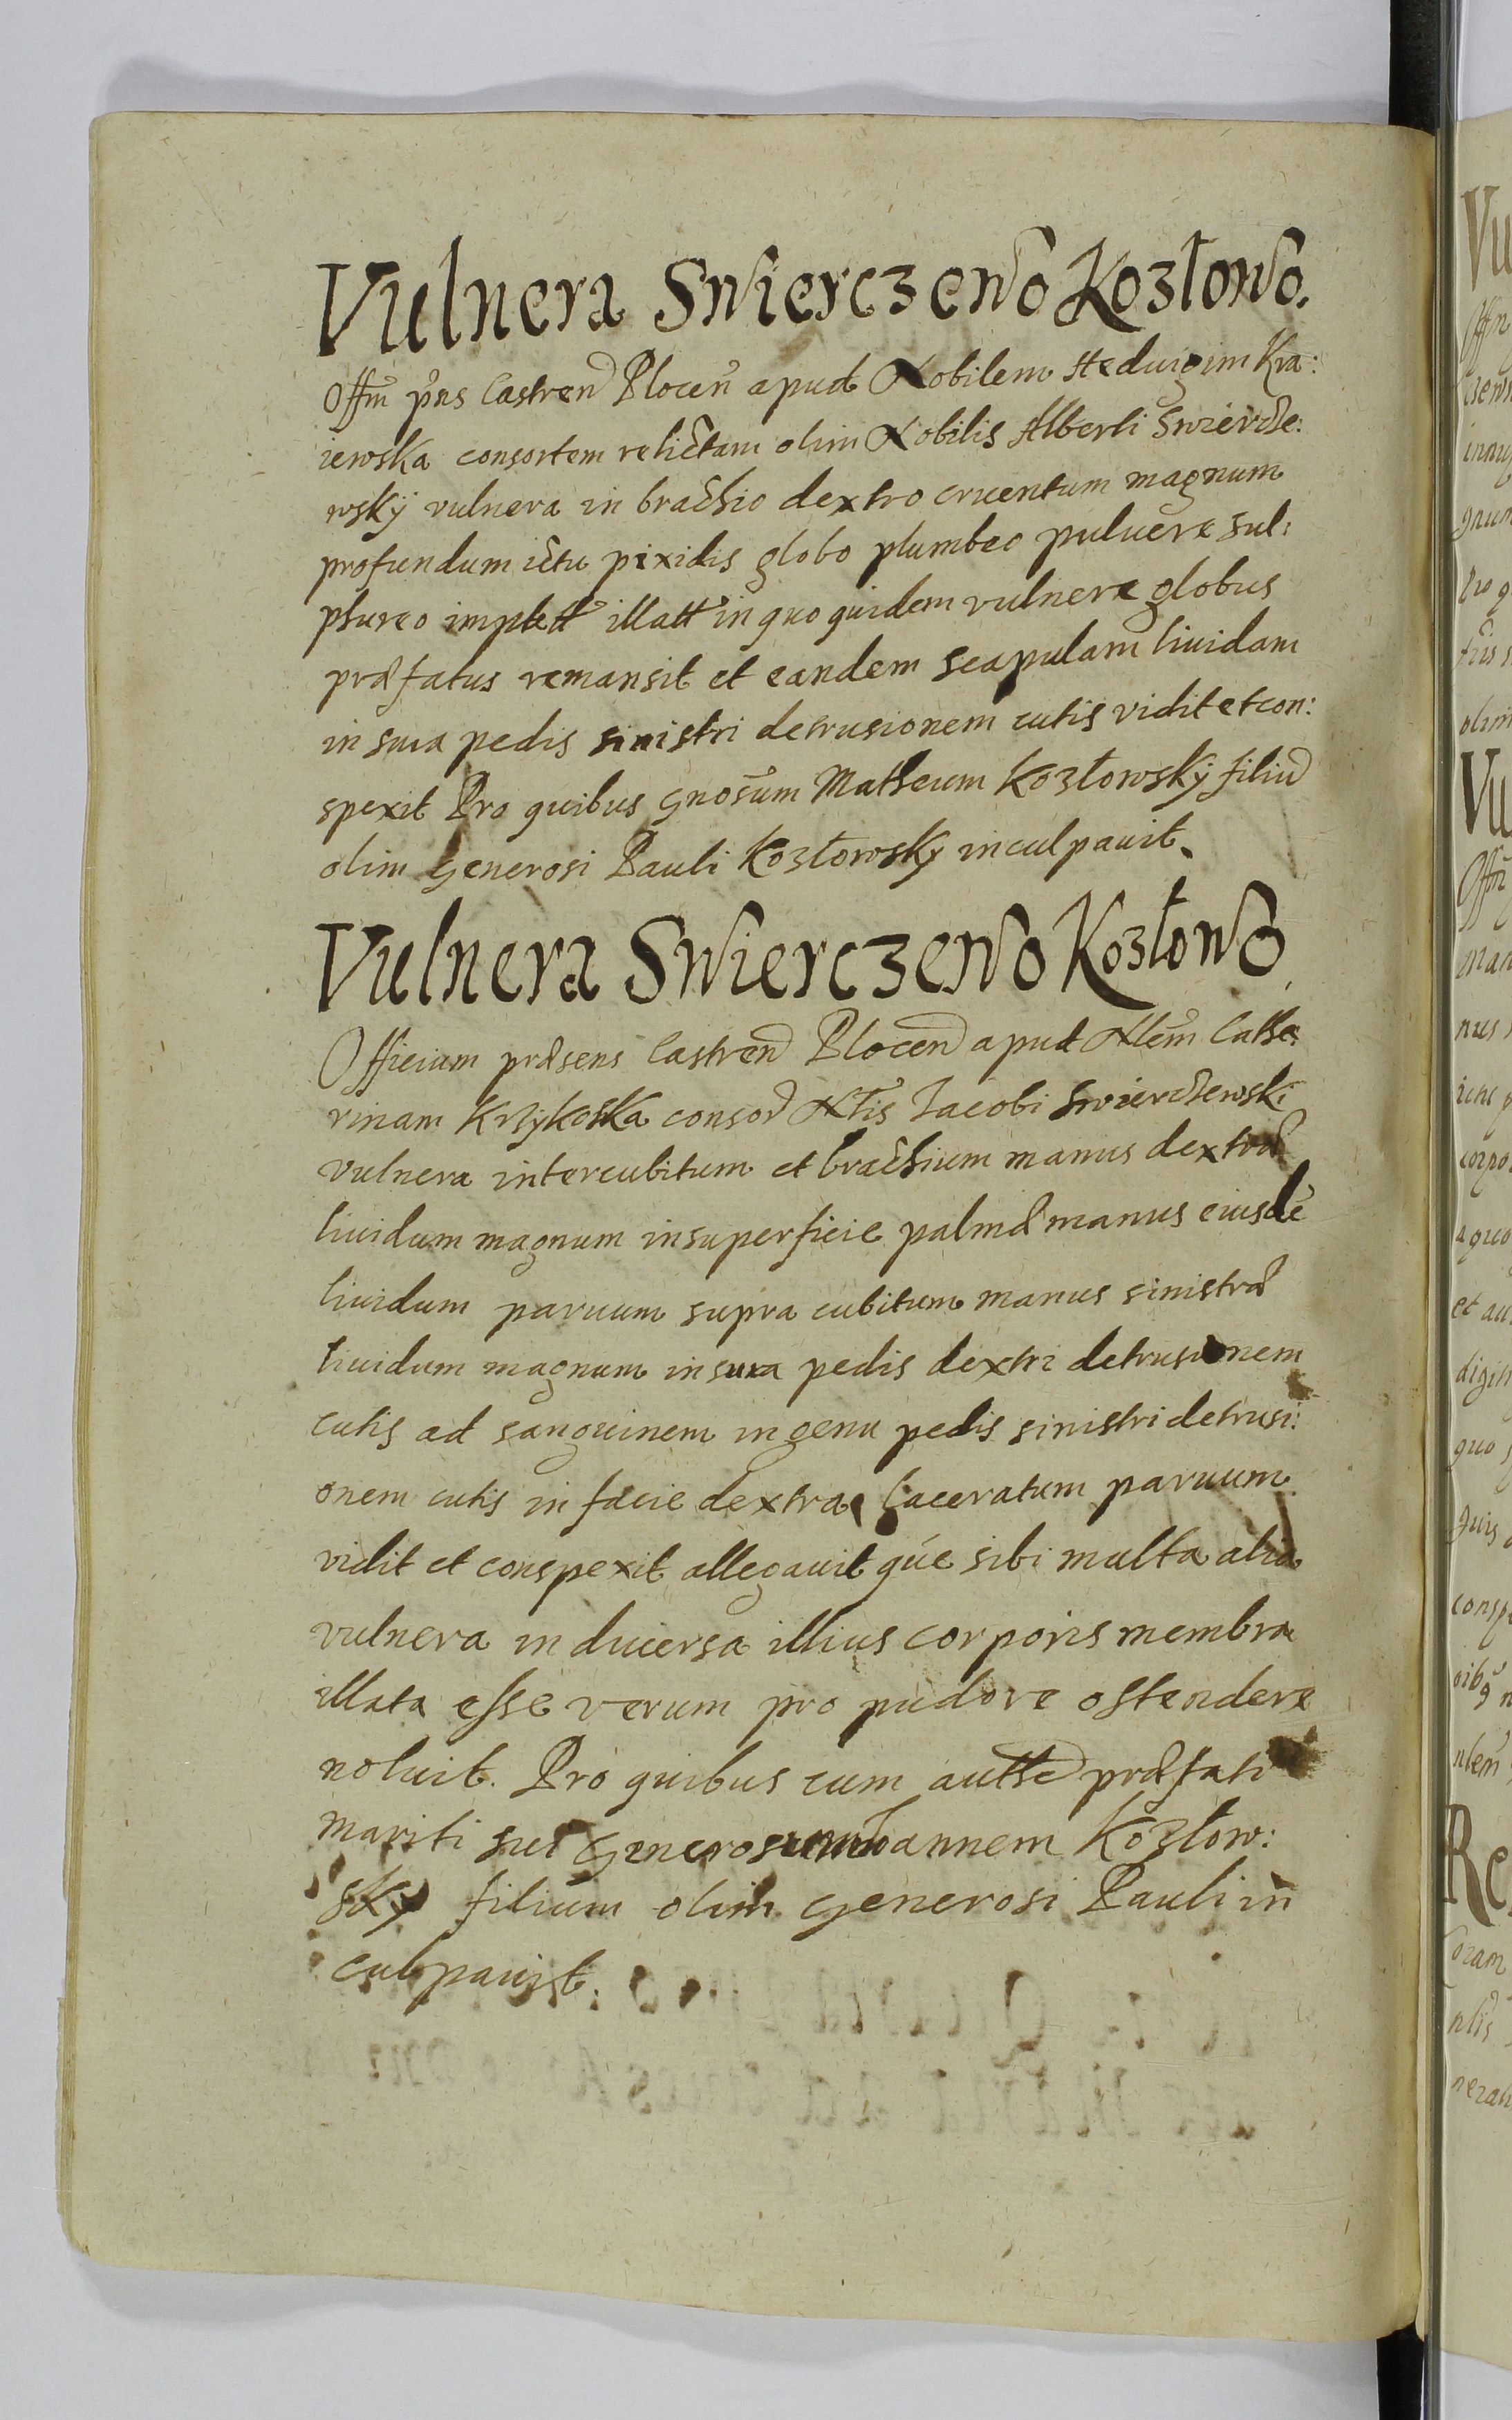 Vulnera Swierczewo Kozłowo.
Offm̃ pñs Castren Plocen̄ apud Nobilem Heduigim Kra:
iewska consortem relictam olim Nobilis Alberti Swiercze:
wskÿ vulnera in brachio dextro cruentum magnum
profundum ictu pixidis globo plumbeo puluere sul:
phureo implett illatt in quo quidem vulnere globus
præfatus remansit et eandem scapulam liuidam
in sura pedis sinistri detrusionem cutis vidit et con:
spexit Pro quibus Gnosum Matheum Kozłowskÿ filiu
olim Generosi Pauli Kozłowsky inculpauit.
Vulnera Swierczewo Kozłowo
Officium præsens Castren Plocen apud Nlem̃ Cathe:
rinam Krzykoska consor Nlis Jacobi Swierczewski
vulnera inter cubitum et brachium manus dextræ
liuidum magnum in superficie palmæ manus eiusdē
liuidum paruum supra cubitum manus sinistræ
liuidum magnum in sura pedis dextri detrusionem
cutis ad sanguinem in genu pedis sinistri detrusi:
onem cutis in facie dextra laceratum paruum
vidit et conspexit allegauit qúe sibi multa alia
vulnera in diuersa illius corporis membra
illata esse verum pro pudore ostendere
noluit. Pro quibus cum autthe præfati
mariti sui Generosum Joannem Kozłow:
sky filium olim Generosi Pauli in
culpauit.